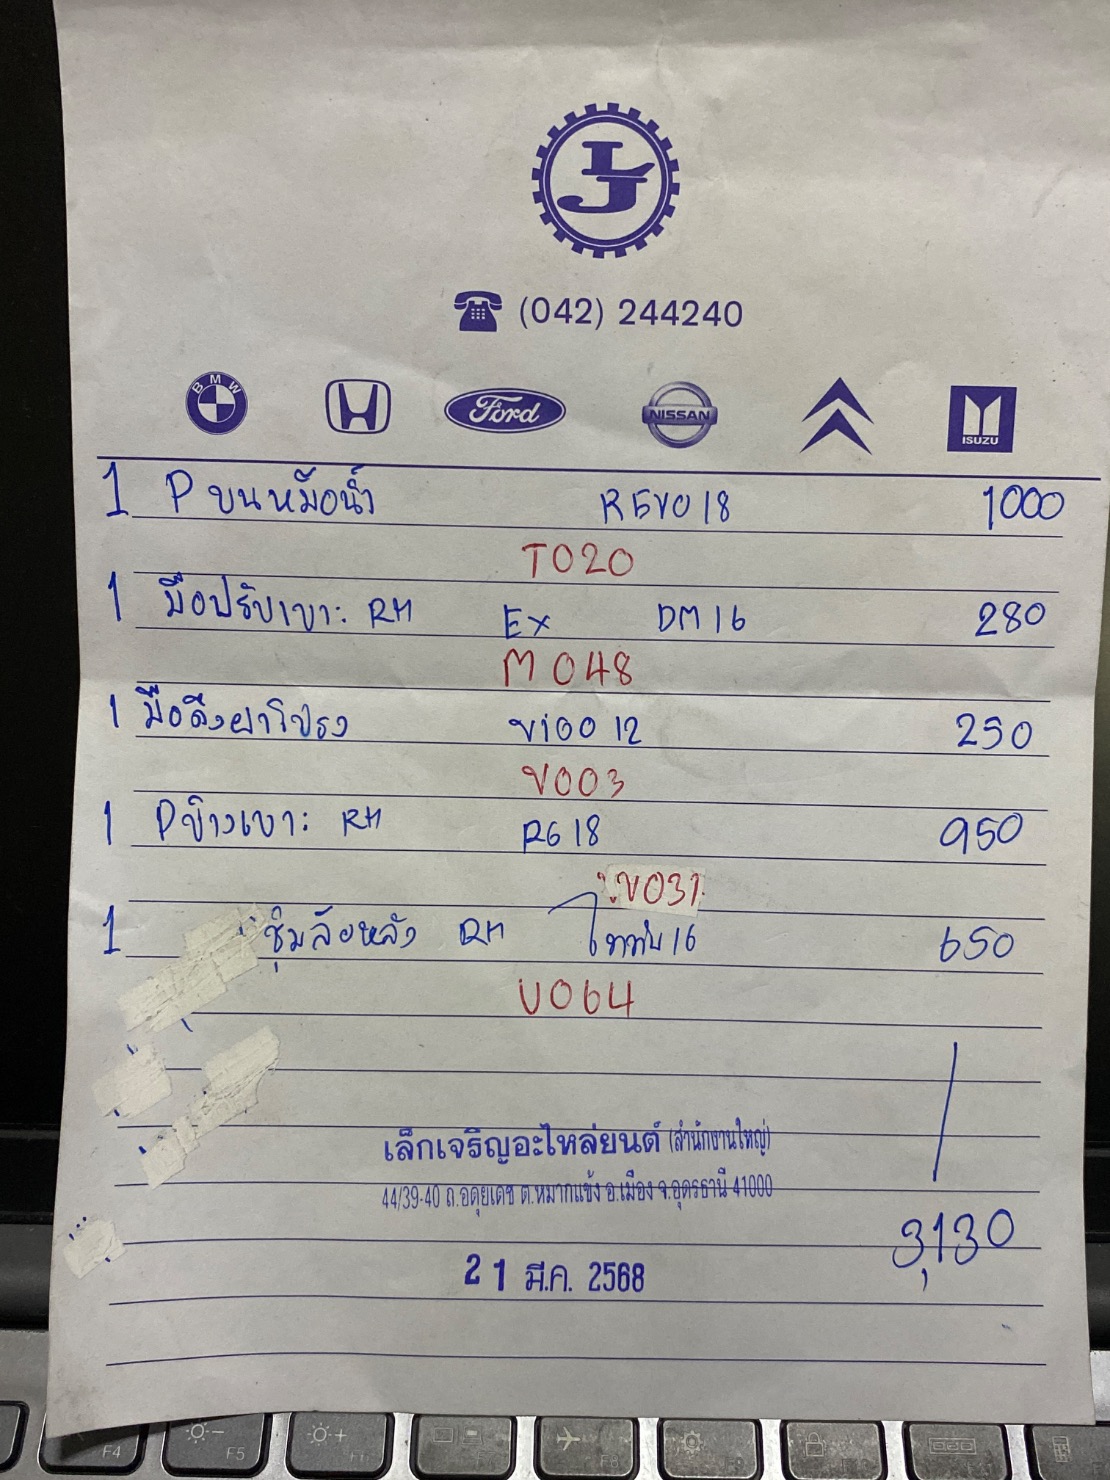 LJ
(042) 244240
BMW Ford NISSAN ISUZU
1 P บนหม้อน้ำ REVO 18 1000
T020
1 มือปรับเบาะ RH EX DM16 280
M048
1 มือดึงฝาโปรง VIGO 12 250
V003
1 Pข้างเบาะ RH RG 18 950
V031
1 ซุ้มล้อหลัง RH ไททัน 16 650
U064
เล็กเจริญอะไหล่ยนต์ (สำนักงานใหญ่)
44/39-40 ถ.อดุยเดช ต.หมากแข้ง อ.เมือง จ.อุดรธานี 41000
3,130
21 มี.ค. 2568
F4 F5